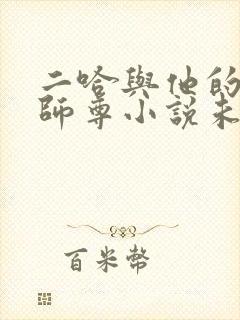 二哈與他的
師尊小說未
百米幣